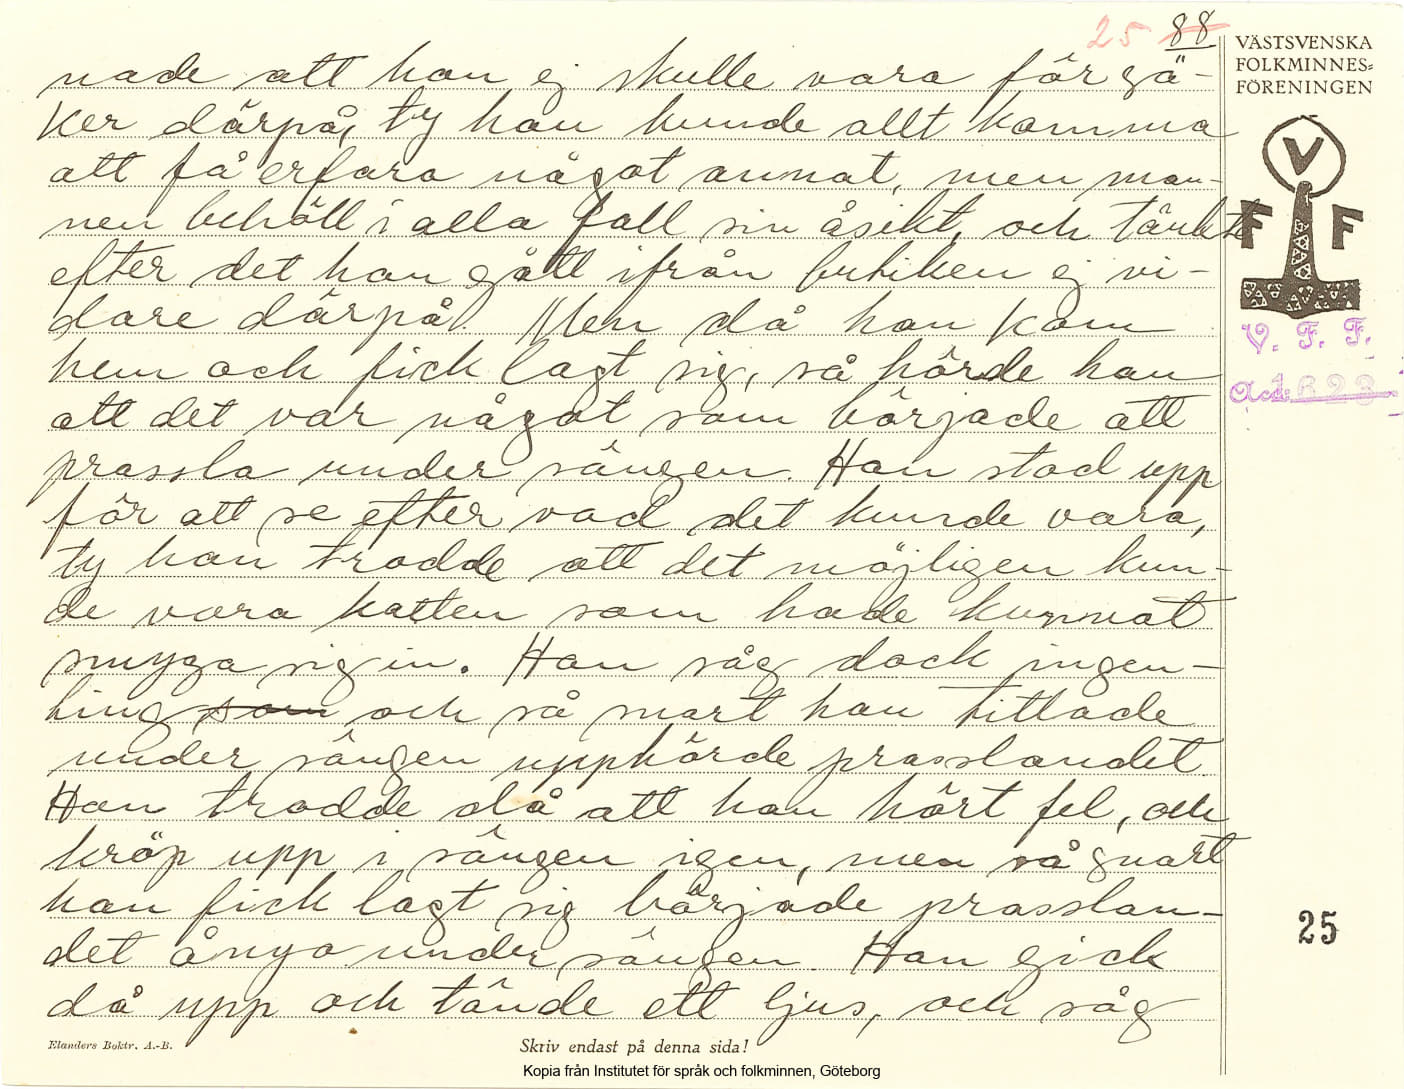 25 88
nade att han ej skulle vara för sä-
ker därpå, ty han kunde allt komma
att få erfara något annat, men man-
nen behöll i alla fall sin åsikt, och tänkte
efter det han gått ifrån butiken ej vi-
dare därpå. Men då han kom
hem och fick lagt sig, så hörde han
att det var något som började att
prassla under sängen. Han stod upp
för att se efter vad det kunde vara,
ty han trodde att det möjligen kun-
de vara katten som hade kunnat
smyga sig in. Han såg dock ingen-
ting som och så snart han tittade
under sängen upphörde prasslandet.
Han trodde då att han hört fel, och
kröp upp i sängen igen, men så snart
han fick lagt sig började prasslan-
det ånyo under sängen. Han gick
då upp och tände ett ljus, och såg
VÄSTSVENSKA
FOLKMINNES=
FÖRENINGEN
V
F F
V. F. F.
Acc: 1623
25
Elanders Boktr. A.-B.
Skriv endast på denna sida!
Kopia från Institutet för språk och folkminnen, Göteborg